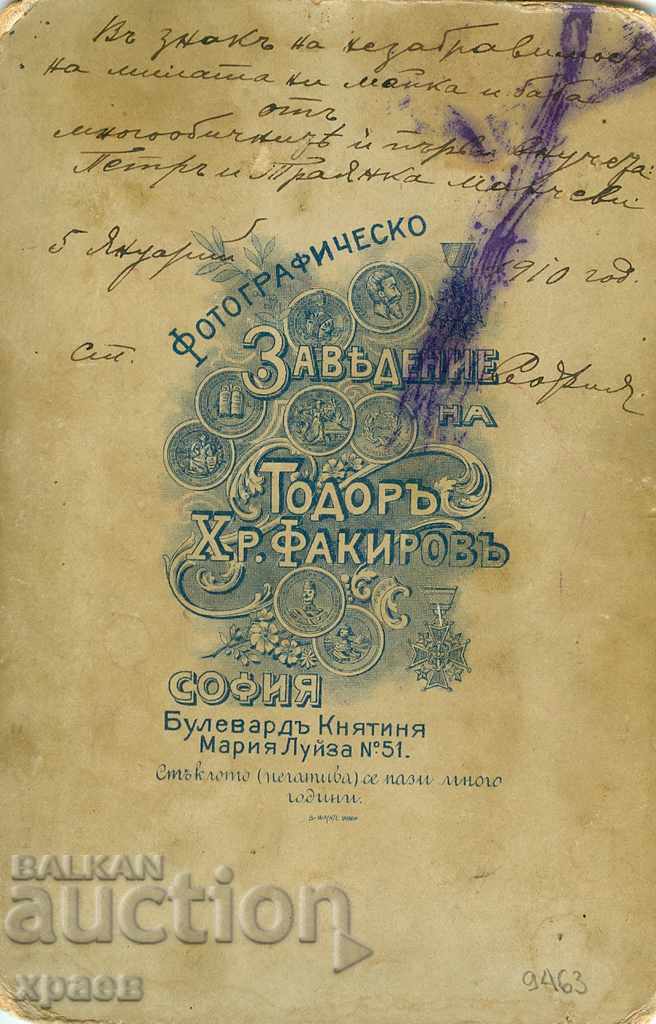 Въ знакъ на незабравимость
на милата ни майка и баба
отъ
многообичнитѣ ѝ първи внучета:
Петръ и Траянка Манчеви
5 Януарий 1910 год.
ст. София
ФОТОГРАФИЧЕСКО
ЗАВѢДЕНИЕ
НА
ТОДОРЪ
ХР. ФАКИРОВЪ
СОФИЯ
Булевардъ Княтиня
Мария Луйза № 51.
Стъклото (негатива) се пази много
години.
BALKAN
auction
храев
9463